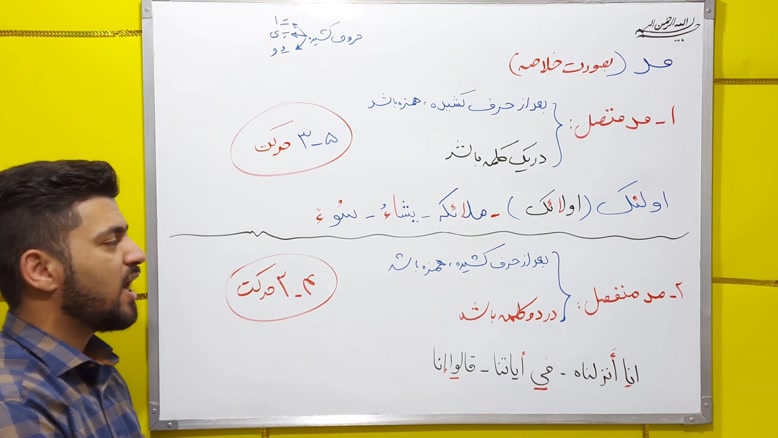 بسم الله الرحمن الرحیم
حروف کشیده:
ـَـ ا
ـِـ ی
ـُـ و
مد (بصورت خلاصه)
۱ـ مد متصل:
بعد از حرف کشیده، همزه باشد
در یک کلمه باشد
۵ـ۳ حرکت
اولئک (اولائک) ـ ملائکه ـ یشاءُ ـ سُوءَ
۲ـ مد منفصل:
بعد از حرف کشیده، همزه باشد
در دو کلمه باشد
۴ـ۳ حرکت
انا أَنزلناه ـ فی أیاتنا ـ قالوا إنا